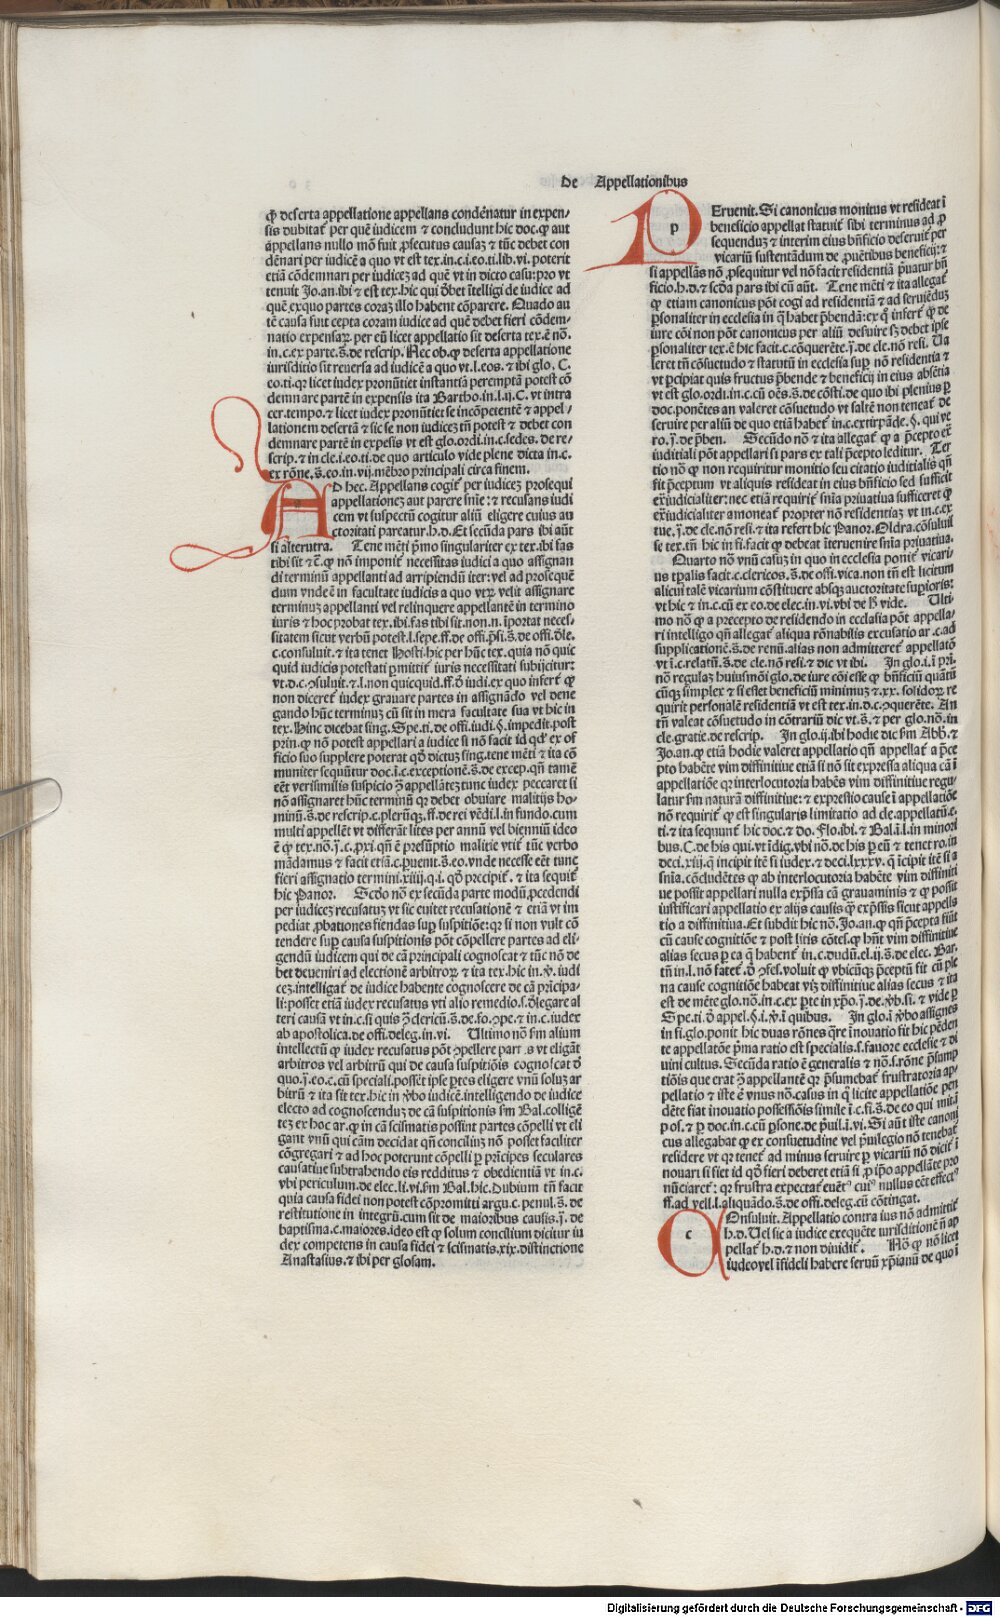 De Appellationibus
ꝙ deserta appellatione appellans condēnatur in expen-
sis dubitat̄ per quē iudicem ⁊ concludunt hic doc. ꝙ aut
appellans nullo mō fuit ꝓsecutus causaꝫ ⁊ tūc debet con
dēnari per iudicē a quo vt est tex. in c. i. eo. ti. lib. vi. poterit
etiā cōdemnari per iudiceꝫ ad quē vt in dicto casu: pro vt
tenuit Jo. an. ibi ⁊ est tex. hic qui d̄bet ītelligi de iudice ad
quē ex quo partes coraꝫ illo habent cōparere. Quādo au
tē causa fuit cepta coram iudice ad quē debet fieri cōdem-
natio expensaꝝ. per eū licet appellatio sit deserta tex. ē nō.
in. c. ex parte. s̄. de rescrip. Nec ob. ꝙ deserta appellatione
iurisditio sit reuersa ad iudicē a quo vt. l. eos. ⁊ ibi glo. C.
eo. ti. qr licet iudex pronūtiet instantiā peremptā potest cō
demnare partē in expensis ita Bartho. in. l. ij. C. vt intra
cer. tempo. ⁊ licet iudex pronūtiet se incōpetentē ⁊ appel-
lationem desertā ⁊ sic se non iudiceꝫ tn̄ potest ⁊ debet con
demnare partē in expēsis vt est glo. ordi. in. c. sedes. de re-
scrip. ⁊ in cle. i. eo. ti. de quo articulo vide plene dicta in. c.
ex rōne. s̄. eo. in. vij. mēbro principali circa finem.
AD hec. Appellans cogit̄ per iudiceꝫ prosequi
appellationeꝫ aut parere sn̄ie: ⁊ recusans iudi
cem vt suspectū cogitur aliū eligere cuius au
ctoritati pareatur. h. d. Et secūda pars ibi aūt
si alterutra. Tene mēti pꝛmo singulariter ex tex. ibi fas
tibi sit ⁊ c̄. ꝙ nō imponit̄ necessitas iudici a quo assignan
di terminū appellanti ad arripiendū iter: vel ad prosequē
dum vnde ē in facultate iudicis a quo vtꝝ velit assignare
terminuꝫ appellanti vel relinquere appellantē in termino
iuris ⁊ hoc probat tex. ibi. fas tibi sit. non. n. īportat neces-
sitatem sicut verbū potest. l. sepe. ff. de offi. p̄si. s̄. de offi. d̄le.
c. consuluit. ⁊ ita tenet Hosti. hic per hūc tex. quia nō quic
quid iudicis potestati ꝑmittit̄ iuris necessitati subijcitur:
vt. d. c. ꝯsuluit. ⁊. l. non quicquid. ff. d̄ iudi. ex quo infert̄ ꝙ
non diceret̄ iudex grauare partes in assignādo vel dene
gando hūc terminuꝫ cū sit in mera facultate sua vt hic in
tex. Hinc dicebat sing. Spe. ti. de offi. iudi. §. impedit. post
prin. ꝙ nō potest appellari a iudice si nō facit id qd' ex of
ficio suo supplere poterat qd̄ dictuꝫ sing. tene mēti ⁊ ita cō
muniter sequūtur doc. ī. c. exceptionē. s̄. de excep. qn̄ tamē
eēt verisimilis suspicio ꝯ̄ appellāteꝫ tunc iudex peccaret si
nō assignaret hūc terminū qr debet obuiare malitijs ho-
minū. s̄. de rescrip. c. plerūqꝫ. ff. de rei vēdi. l. in fundo. cum
multi appellēt vt differāt lites per annū vel bienniū ideo
ē ꝙ tex. nō. j̄. c. ꝓxi. qn̄ ē presūptio malitie vtit̄ tūc verbo
mādamus ⁊ facit etiā. c. ꝑuenit. s̄. eo. vnde necesse eēt tunc
fieri assignatio termini. xiiij. q. i. qd̄ precipit̄. ⁊ ita sequit̄
hic Panor. Scdo nō ex secūda parte modū ꝓcedendi
per iudiceꝫ recusatuꝫ vt sic euitet recusationē ⁊ etiā vt im
pediat ꝓbationes fiendas suꝑ suspitiōe: qr si non vult cō
tendere suꝑ causa suspitionis pōt cōpellere partes ad eli-
gendū iudicem qui de cā principali cognoscat ⁊ tūc nō de
bet deueniri ad electionē arbitroꝝ ⁊ ita tex. hic in. v̄. iudi
ceꝫ. intelligat̄ de iudice habente cognoscere de cā p̄ncipa-
li: posset etiā iudex recusatus vti alio remedio. s. d̄legare al
teri causā vt in. c. si quis ꝯ̄ clericū. s̄. de fo. ꝯpe. ⁊ in. c. iudex
ab apostolica. de offi. deleg. in. vi. Ultimo nō sm̄ alium
intellectū ꝙ iudex recusatus pōt ꝯpellere part s vt eligāt
arbitros vel arbitrū qui de causa suspitiōis cognoscat d̄
quo. j̄. eo. c. cū speciali. possēt ipse ꝑtes eligere vnū soluꝫ ar
bitrū ⁊ ita sit tex. hic in v̄bo iudicē. intelligendo de iudice
electo ad cognoscenduꝫ de cā suspitionis sm̄ Bal. colligē
teꝫ ex hoc ar. ꝙ in cā scismatis possint partes cōpelli vt eli
gant vnū qui cām decidat qn̄ conciliuꝫ nō posset faciliter
cōgregari ⁊ ad hoc poterunt cōpelli ꝑ pꝛincipes seculares
causatiue subtrahendo eis redditus ⁊ obedientiā vt in. c.
vbi periculum. de elec. li. vi. sm̄ Bal. hic. Dubium tn̄ facit
quia causa fidei non potest cōpromitti argu. c. penul. s̄. de
restitutione in integrū. cum sit de maioribus causis. j̄. de
baptisma. c. maiores. ideo est ꝙ solum concilium dicitur iu
dex competens in causa fidei ⁊ scismatis. xix. distinctione
Anastasius. ⁊ ibi per glosam.
PEruenit. Si canonicus monitus vt resideat ī
beneficio appellat statuit̄ sibi terminus ad ꝓ
sequenduꝫ ⁊ interim eius bn̄ficio deseruit̄ per
vicariū sustentādum de ꝓuētibus beneficij: ⁊
si appellās nō ꝓsequitur vel nō facit residentiā p̄uatur bn̄
ficio. h. d. ⁊ scd̄a pars ibi cū aūt. Tene mēti ⁊ ita allegat̄
ꝙ etiam canonicus pōt cogi ad residentiā ⁊ ad seruiēduꝫ
ꝑsonaliter in ecclesia in q̄ habet p̄bendā: ex q̄ infert̄ ꝙ de
iure cōi non pōt canonicus per aliū deseruire sꝫ debet ipse
ꝑsonaliter tex. ē hic facit. c. cōquerēte. j̄. de cle. nō resi. Ua
leret tn̄ cōsuetudo ⁊ statutū in ecclesia suꝑ nō residentia ⁊
vt ꝑcipiat quis fructus p̄bende ⁊ beneficij in eius absētia
vt est glo. ordi. in. c. cū oēs. s̄. de cōsti. de quo ibi plenius ꝑ
doc. ponētes an valeret cōsuetudo vt saltē non teneat̄ de
seruire per aliū de quo etiā habet̄ in. c. extirpāde. §. qui ve
ro. j̄. de p̄ben. Secūdo nō ⁊ ita allegat̄ ꝙ a p̄cepto ex̄
iuditiali pōt appellari si pars ex tali p̄cepto leditur. Ter
tio nō ꝙ non requiritur monitio seu citatio iuditialis qn̄
fit p̄ceptum vt aliquis resideat in eius bn̄ficio sed sufficit
ex̄iudicialiter: nec etiā requirit̄ sn̄ia priuatiua sufficeret ꝙ
ex̄iudicialiter amoneat̄ propter nō residentiaꝫ vt in. c. ex
tue. j̄. de cle. nō resi. ⁊ ita refert hic Panor. Oldra. cōsuluis
se tex. tn̄ hic in fi. facit ꝙ debeat īteruenire sn̄ia priuatiua.
Quarto nō vnū casuꝫ in quo in ecclesia ponit̄ vicari-
us tꝑalis facit. c. clericos. s̄. de offi. vica. non tn̄ est licitum
alicui talē vicarium cōstituere absqꝫ auctoritate suꝑioris:
vt hic ⁊ in. c. cū ex eo. de elec. in. vi. vbi de h̄ vide. Ulti-
mo nō ꝙ a precepto de residendo in ecclesia pōt appella-
ri intelligo qn̄ allegat̄ aliqua rōnabilis excusatio ar. c. ad
supplicationē. s̄. de renū. alias non admitteret̄ appellatō
vt ī. c. relatū. s̄. de cle. nō resi. ⁊ dic vt ibi. In glo. i. ī pri.
nō regulaꝫ huiusmōi glo. de iure cōi esse ꝙ bn̄ficiū quātū
cūqꝫ simplex ⁊ si esset beneficiū minimuꝫ ⁊. xx. solidoꝝ re
quirit personalē residentiā vt est tex. in. d. c. ꝯquerēte. An
tn̄ valeat cōsuetudo in cōtrariū dic vt. s̄. ⁊ per glo. nō. in
cle. gratie. de rescrip. In glo. ij. ibi hodie dic sm̄ Abb. ⁊
Jo. an. ꝙ etiā hodie valeret appellatio qn̄ appellat̄ a p̄ce
pto habēte vim diffinitiue etiā si nō sit expressa aliqua cā ī
appellatiōe qr interlocutoria habēs vim diffinitiue regu-
latur sm̄ naturā diffinitiue: ⁊ expressio cause ī appellatiōe
nō requirit̄ ꝙ est singularis limitatio ad cle. appellatū. e.
ti. ⁊ ita sequunt̄ hic doc. ⁊ do. Flo. ibi. ⁊ Bal. ī. l. in minori
bus. C. de his qui. vt īdig. vbi nō. de his ꝑ eū ⁊ tenet ro. in
deci. xiij. q̄ incipit itē si iudex. ⁊ deci. lxxxv. q̄ īcipit itē si a
sn̄ia. cōcludētes ꝙ ab interlocutoria habēte vim diffiniti
ue possit appellari nulla exp̄ssa cā grauaminis ⁊ ꝙ possit
iustificari appellatio ex alijs causis q̄ȝ exp̄ssis sicut appella
tio a diffinitiua. Et subdit hic nō. Jo. an. ꝙ qn̄ p̄cepta fiūt
cū cause cognitiōe ⁊ post litis cōtes. ꝙ hn̄t vim diffinitiue
alias secus ꝑ ea q̄ habent̄ in. c. dudū. el. ij. s̄. de elec. Bar.
tn̄ in. l. nō fatet̄. d̄ ꝯfes. voluit ꝙ vbicūqꝫ p̄ceptū fit cū ple
na cause cognitiōe habeat viꝫ diffinitiue alias secus ⁊ ita
est de mēte glo. nō. in. c. ex ꝑte in xp̄o. j̄. de v̄b. si. ⁊ vide ꝑ
Spe. ti. d̄ appel. §. i. v̄. ī quibus. In glo. i v̄bo assignes
in fi. glo. ponit hic duas rōnes q̄re īnouatio fit hic pēden
te appellatōe p̄ma ratio est specialis. s. fauore ecclesie ⁊ di
uini cultus. Secūda ratio ē generalis ⁊ nō. s. rōne p̄sump
tiōis que erat ꝯ̄ appellantē qr p̄sumebat̄ frustratoria ap-
pellatio ⁊ iste ē vnus nō. casus in q̄ licite appellatiōe pen
dēte fiat inouatio possessiōis simile ī. c. fi. s̄. de eo qui mit. ī
pos. ⁊ ꝑ doc. in. c. cū ꝑsone. de p̄uil. ī. vi. Si aūt iste canoni
cus allegabat ꝙ ex consuetudine vel p̄uilegio nō tenebat̄
residere vt qr tenet̄ ad minus seruire ꝑ vicariū nō dicit̄ ī
nouari si fiet id qd̄ fieri deberet etiā si ꝓ ip̄o appellāte pro
nūciaret̄: qr frustra expectat̄ euēt⁹ cui⁹ nullus eēt effect⁹
ff. ad vell. l. aliquādo. s̄. de offi. deleg. cū cōtingat.
COnsuluit. Appellatio contra ius nō admittit̄
h. d. Uel sic a iudice exequēte iurisditionē n̄ ap
pellat̄ h. d. ⁊ non diuidit̄. Nō ꝙ nō licet
iudeo vel īfideli habere seruū xp̄ianū de quo ī
Digitalisierung gefördert durch die Deutsche Forschungsgemeinschaft - DFG